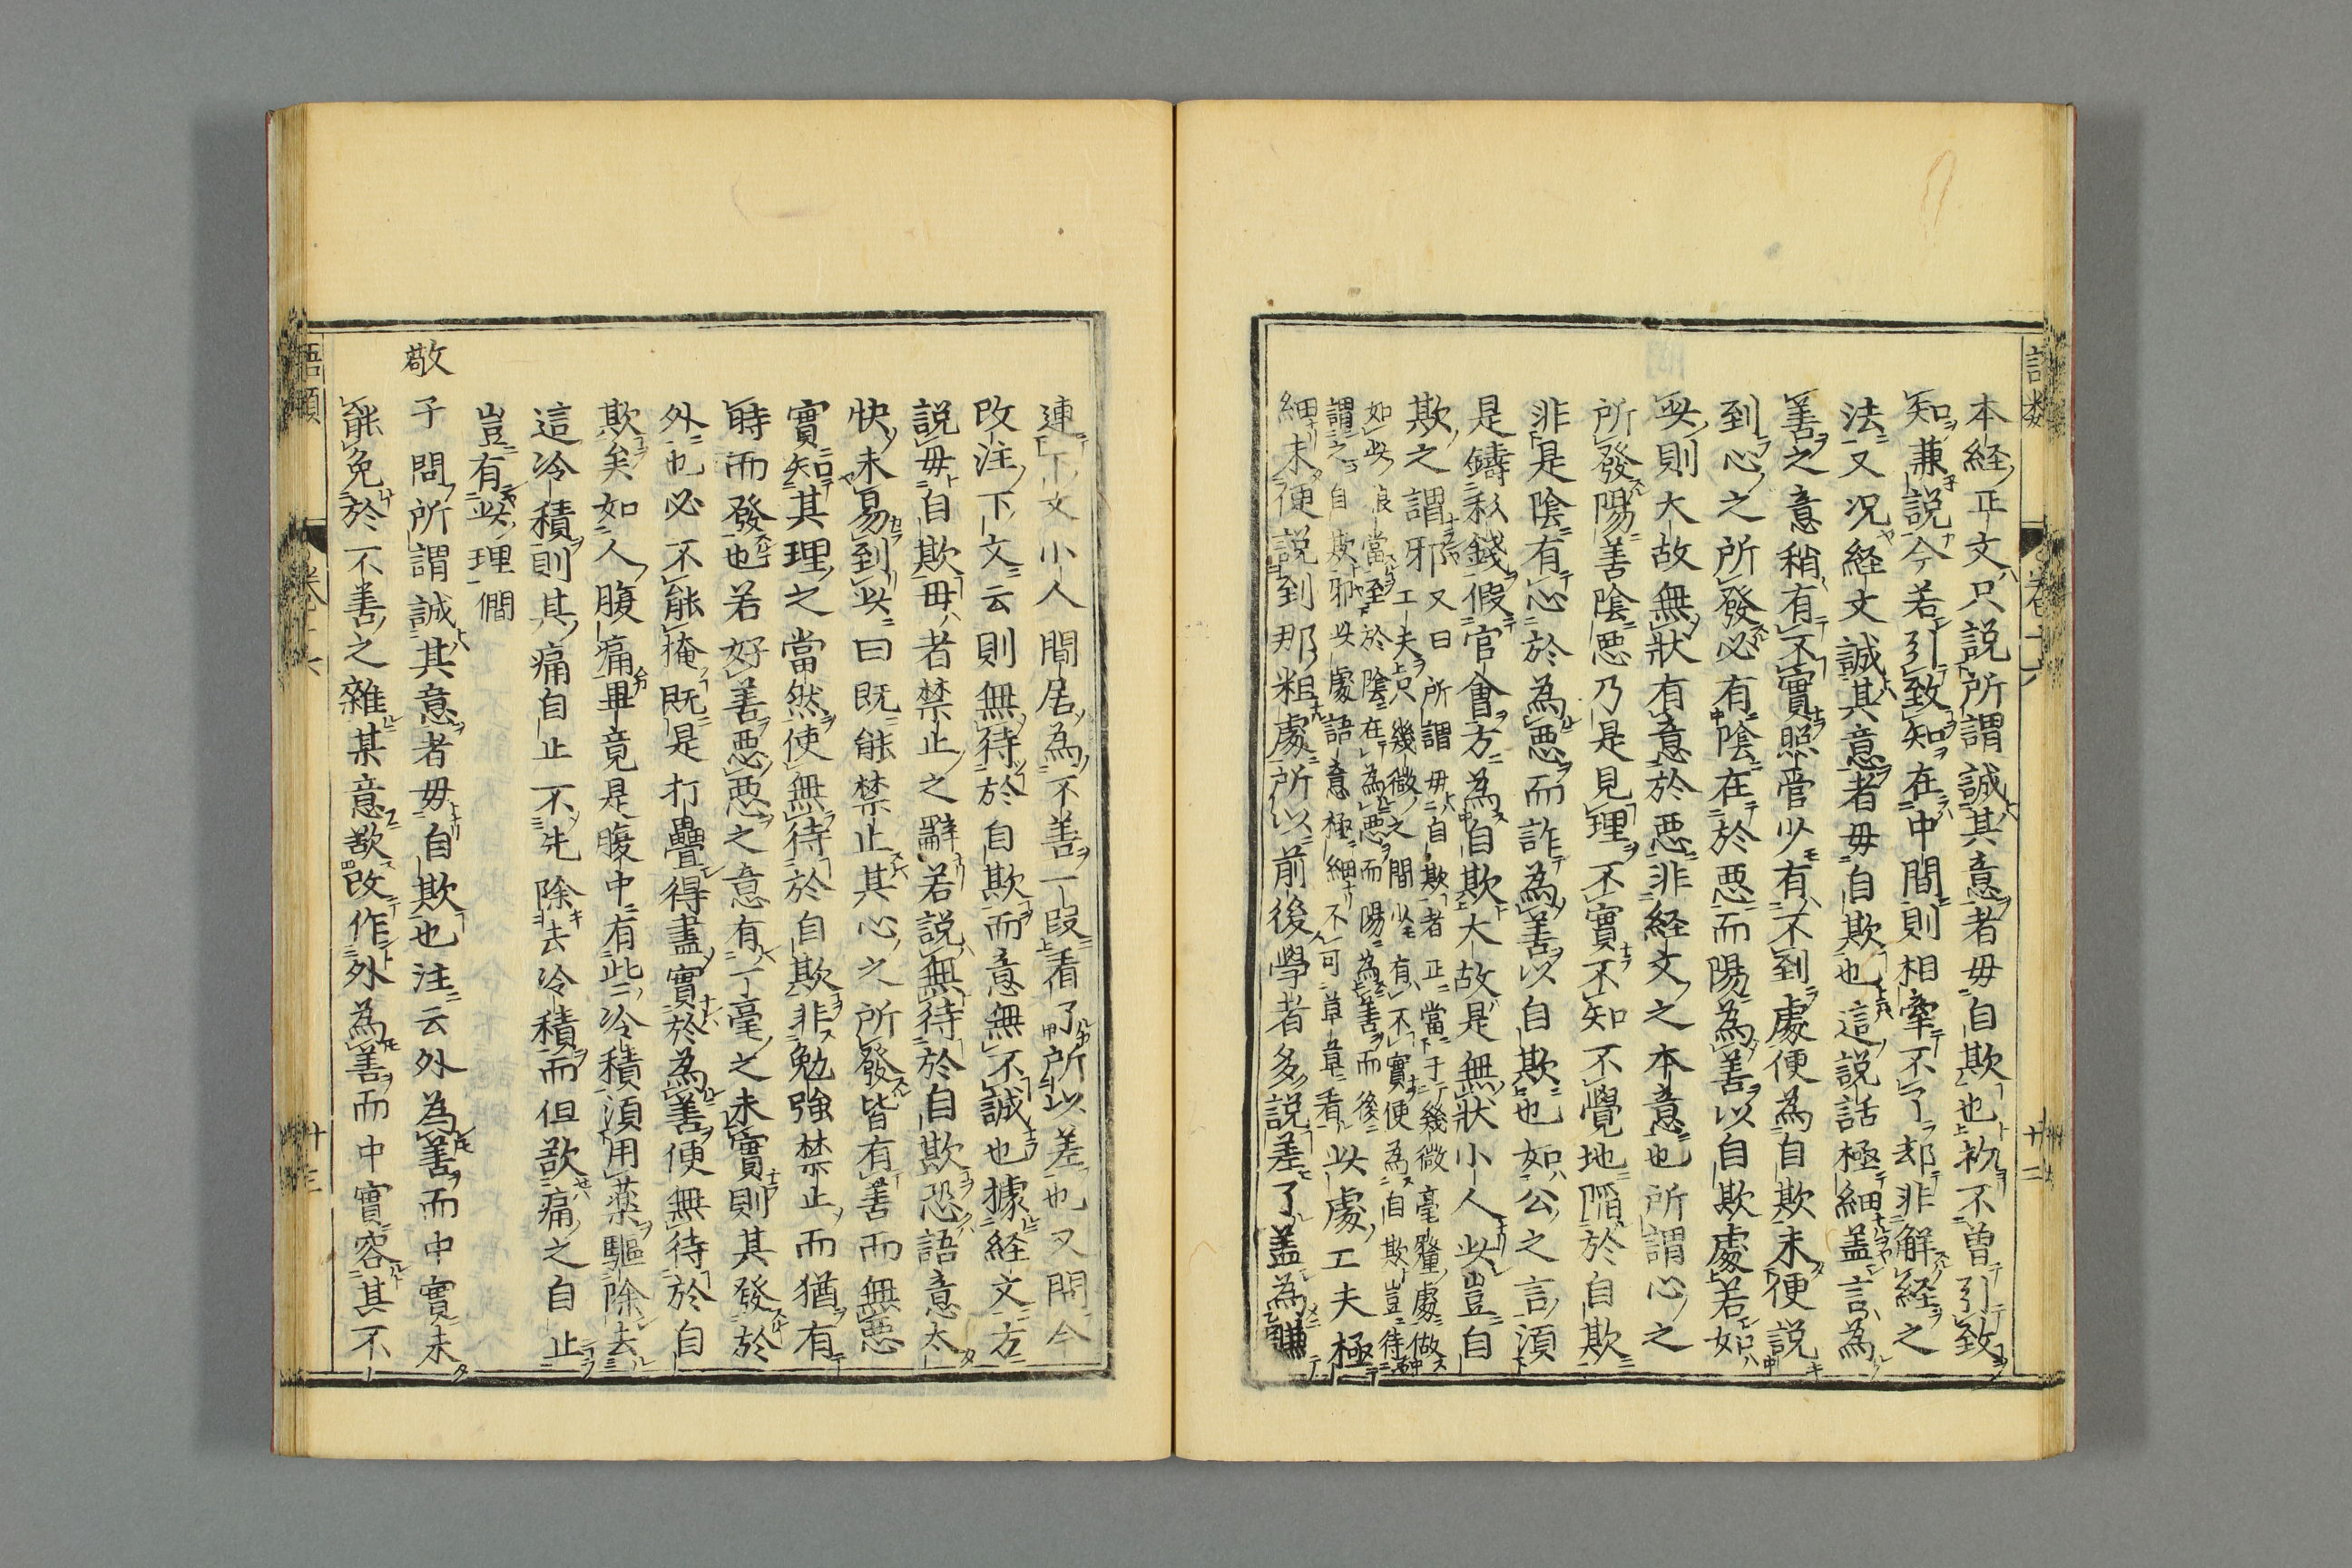 語類
卷十六
十二
本経正文只説所謂誠其意者毋自欺也初不曽引致
知兼説今若引致知在中間則相牽不了却非解経之
法又况経文誠其意者毋自欺也這説話極細盖言為
善之意稍有不實照管少有不到處便為自欺未便説
到心之所發必有陰在於悪而陽為善以自欺處若如
此則大故無狀有意於悪非経文之本意也所謂心之
所發陽善陰悪乃是見理不實不知不覺地陷於自欺
非是陰有心於為悪而詐為善以自欺也如公之言須
是鑄私錢假官會方為自欺大故是無狀小人此豈自
欺之謂邪又曰所謂毋自欺者正當于幾微毫釐處做
工夫只幾微之間少有不實便為自欺豈待
如此狼當至於陰在為悪而陽為善而後
謂之自欺邪此處語意極細不可草草看此處工夫極
細未便説到那粗處所以前後學者多説差了盖為賺
連下文小人間居為不善一段看了所以差也又問今
改注下文云則無待於自欺而意無不誠也據経文方
説毋自欺毋者禁止之辭若説無待於自欺恐語意太
快未易到此曰既能禁止其心之所發皆有善而無悪
實知其理之當然使無待於自欺非勉強禁止而猶有
時而發也若好善悪悪之意有一毫之未實則其發於
外也必不能掩既是打疊得盡實於為善便無待於自
欺矣如人腹痛畢竟是腹中有些冷積須用藥驅除去
這冷積則其痛自止不先除去冷積而但欲痛之自止
豈有此理僩
敬
子問所謂誠其意者毋自欺也注云外為善而中實未
能免於不善之雜某意欲改作外為善而中實容其不
語類
卷十六
十三